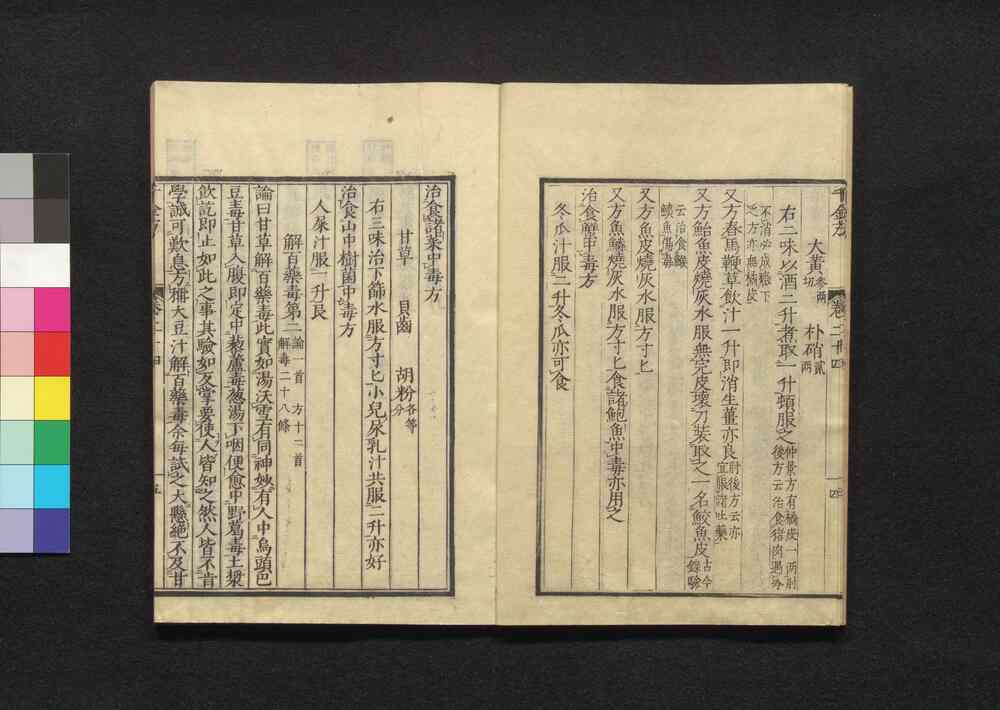 千金方 卷二十四 一四
大黃叁兩切 朴硝貳兩
右二味以酒二升煮取一升頓服之仲景方有橘皮一兩肘後方云治食猪肉遇冷
不消必成癥下之方亦無橘皮
又方舂馬鞭草飲汁一升即消生薑亦良肘後方云亦宜服諸吐藥
又方鮐魚皮燒灰水服無完皮壞刀裝取之一名鮫魚皮古今錄驗
云治食鱠鱠魚傷毒
又方魚皮燒灰水服方寸匕
又方魚鱗燒灰水服方寸匕食諸鮑魚中毒亦用之
治食蟹中毒方
冬瓜汁服二升冬瓜亦可食
治食諸菜中毒方
甘草 貝齒 胡粉各等分
右三味治下篩水服方寸匕小兒尿乳汁共服二升亦好
治食山中樹菌中毒方
人屎汁服一升良
解百藥毒第二論一首 方十二首 解毒二十八條
論曰甘草解百藥毒此實如湯沃雪有同神妙有人中烏頭巴
豆毒甘草入腹即定中藜蘆毒葱湯下咽便愈中野葛毒土漿
飲訖即止如此之事其驗如反掌要使人皆知之然人皆不肯
學誠可歎息方稱大豆汁解百藥毒余每試之大懸絕不及甘
千金方 卷二十四 一五